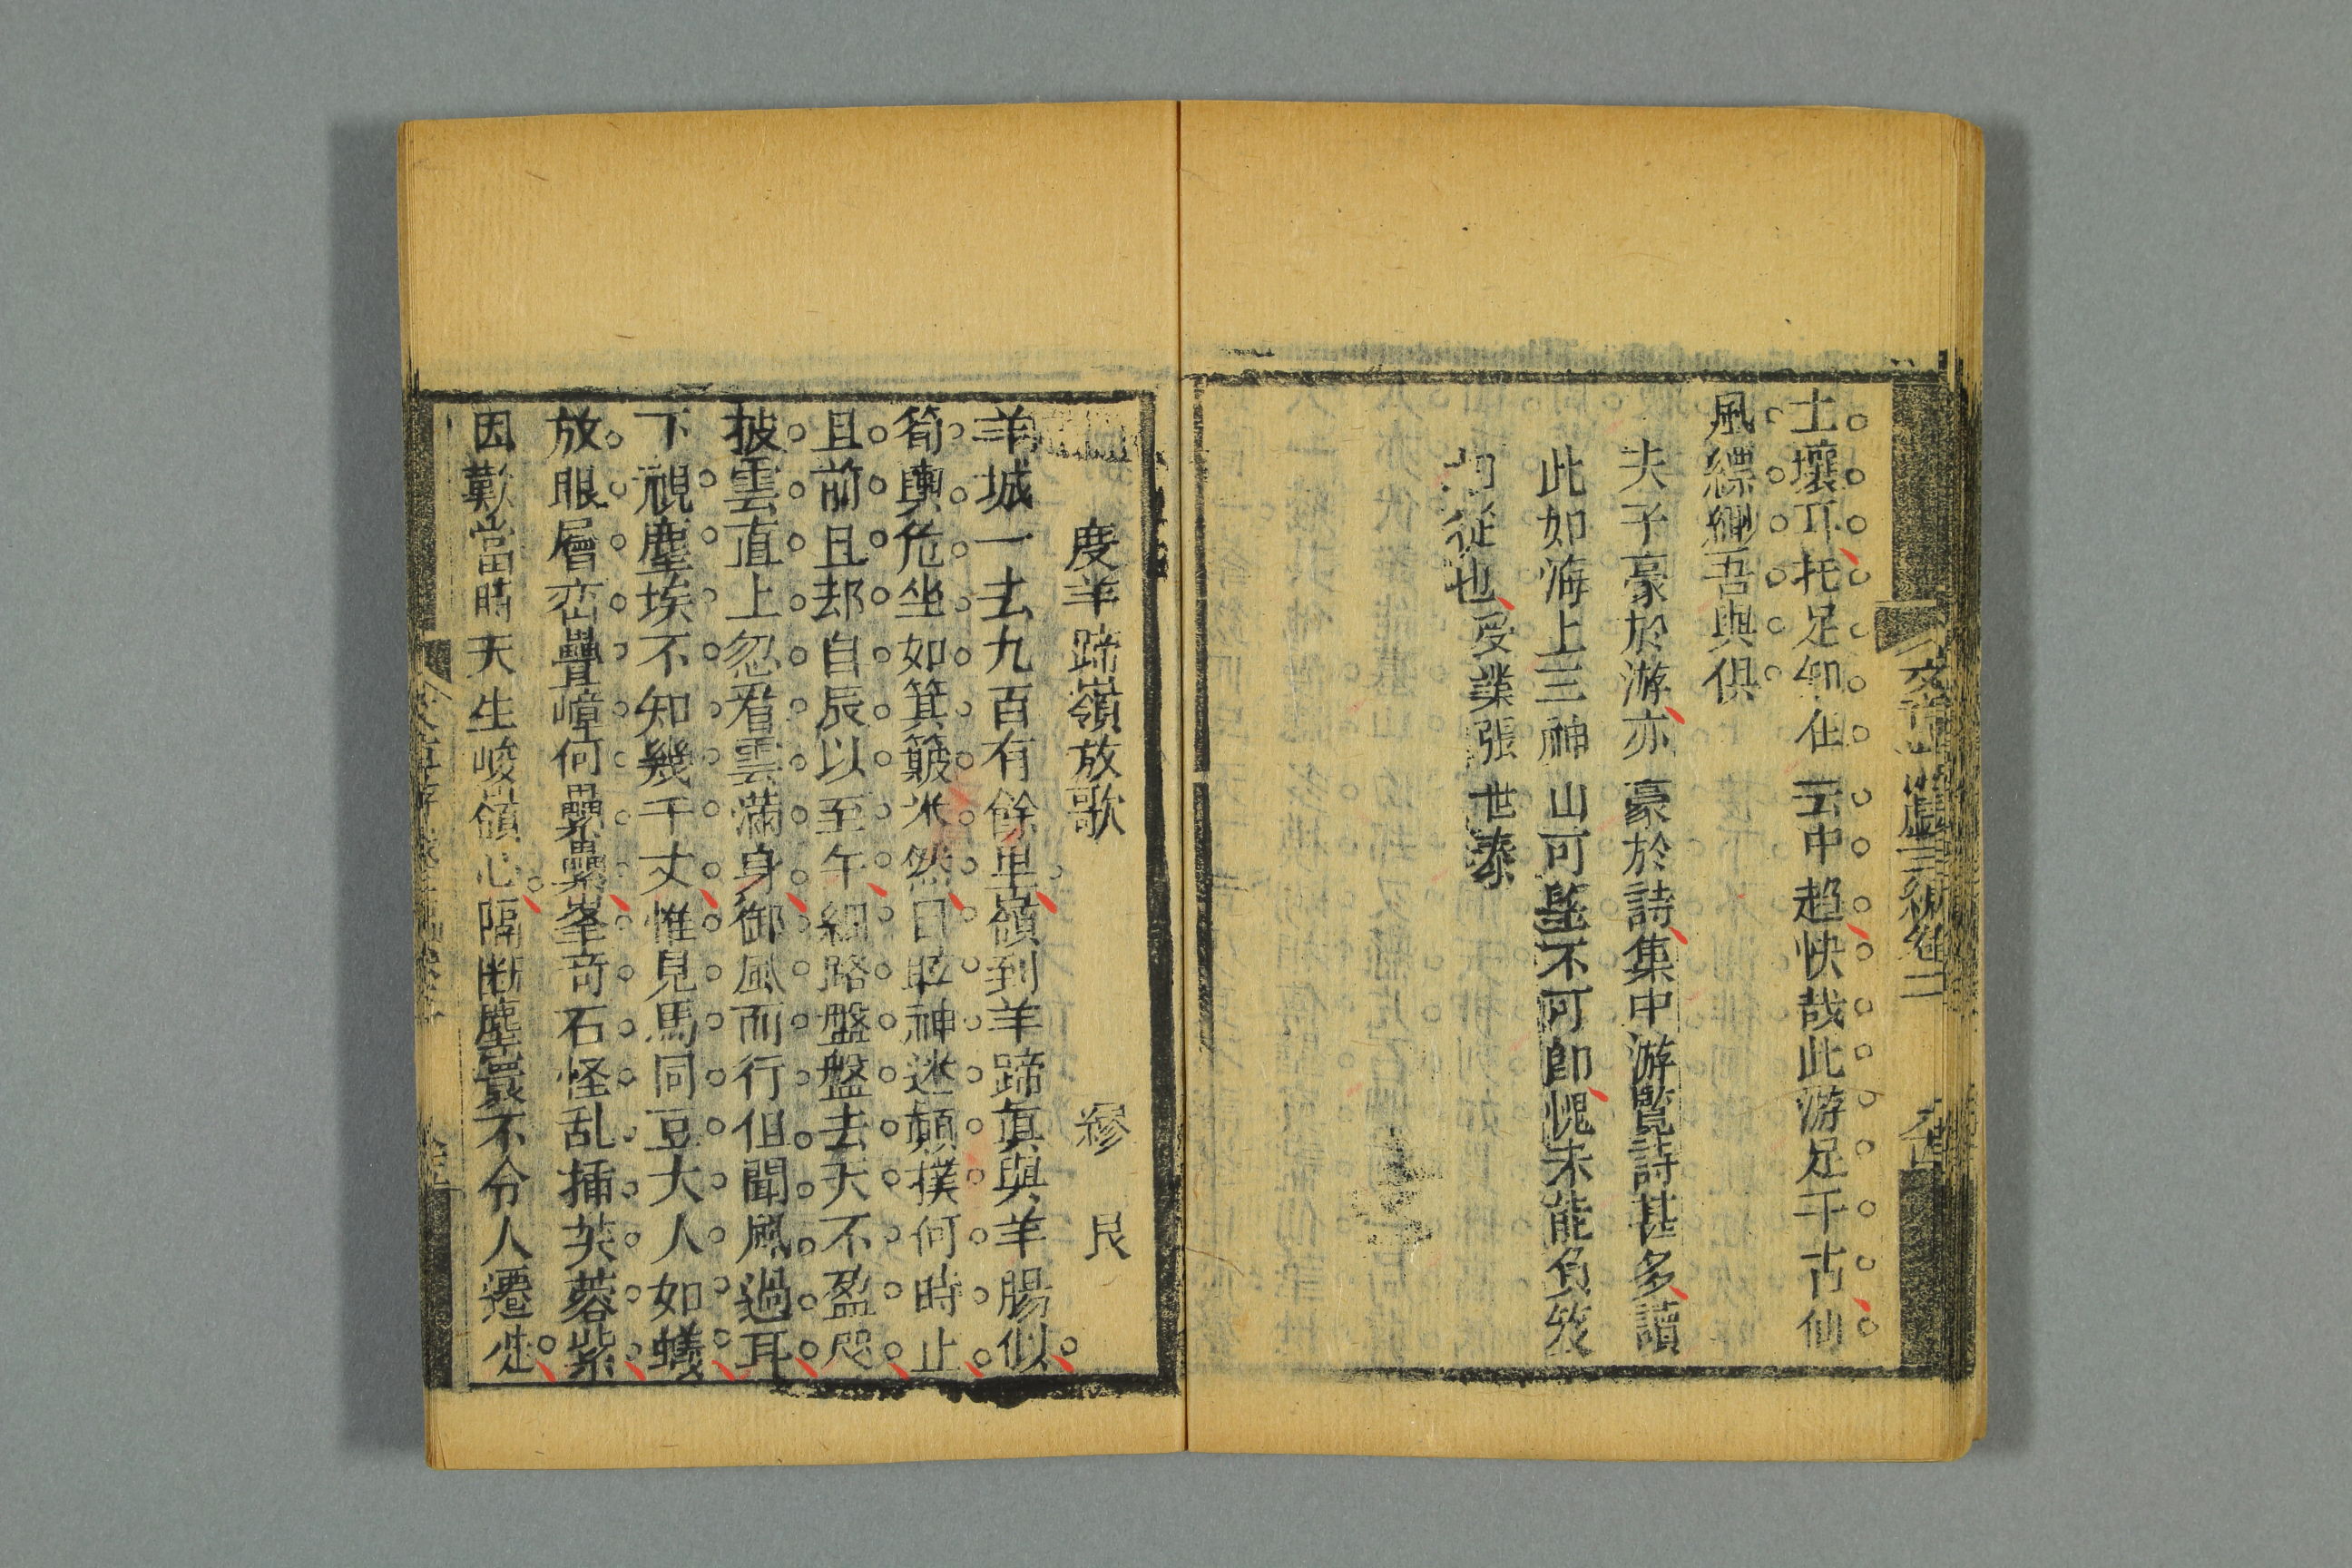 土壤耳托足仰在雲中趨快哉此游足千古仙
風縹緲吾與俱
夫子豪於游亦豪於詩集中游覽詩甚多讀
此如海上三神山可望不可即愧未能負笈
相從也受業張世泰
度羊蹄嶺放歌 繆艮
羊城一去九百有餘里嶺到羊蹄眞與羊腸似
筍輿危坐如箕簸米然目眩神迷顛撲何時止
且前且却自辰以至午細路盤盤去天不盈咫
披雲直上忽看雲滿身御風而行但聞風過耳
下視塵埃不知幾千丈惟見馬同豆大人如蟻
放眼層巒疊嶂何纍纍峯奇石怪乱插芙蓉紫
因歎當時天生峻嶺心隔斷塵寰不令人遷徙